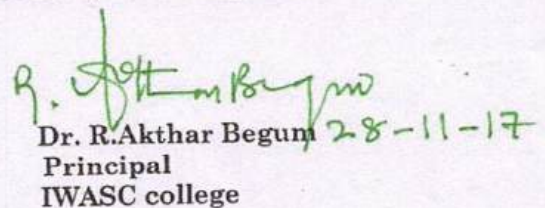 R. Akthar Begum
Dr. R.Akthar Begum 28-11-17
Principal
IWASC college